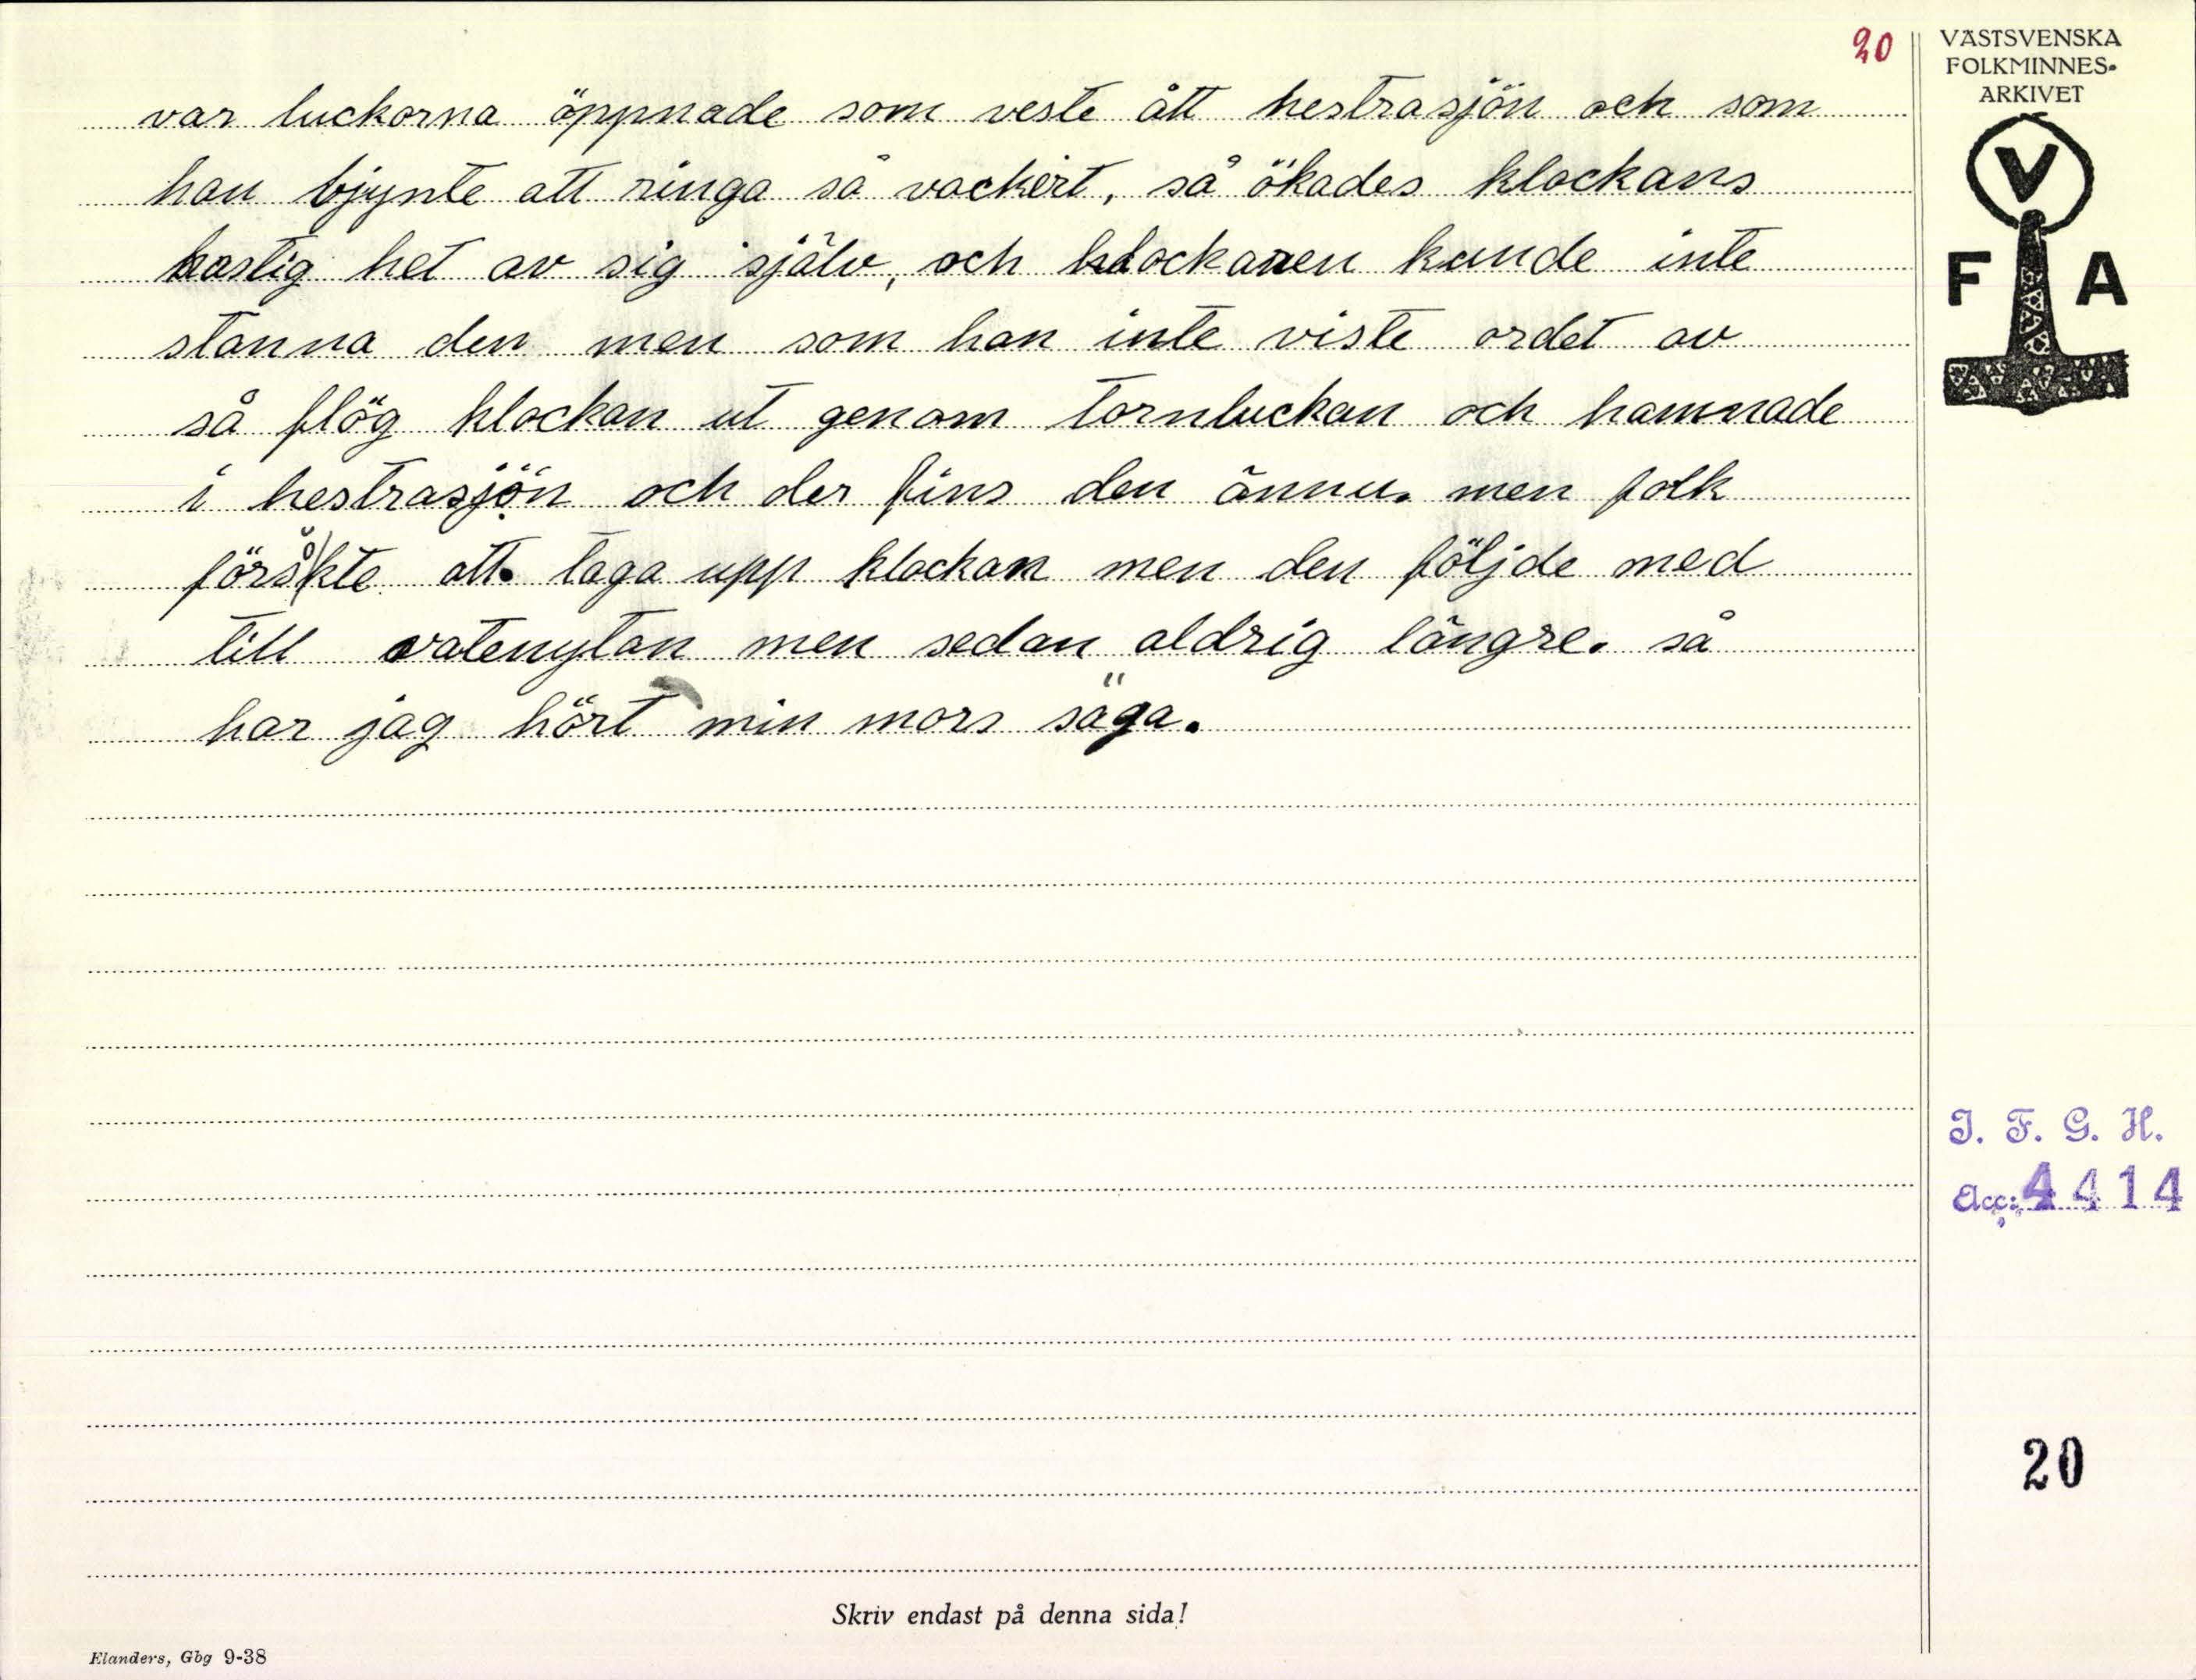 20
VÄSTSVENSKA
FOLKMINNES-
ARKIVET
V
F A
var luckorna öppnade som veste ått hestrasjön och som
han bjynte att ringa så vackert, så ökades klockans
hastig het av sig själv, och klockaren kunde inte
stanna den men som han inte viste ordet av
så flög klockan ut genom tornluckan och hamnade
i hestrasjön och der fins den ännu. men folk
försökte att taga upp klockan men den följde med
till vatenytan men sedan aldrig längre. så
har jag hört min mors säga.
I. F. G. H.
Acc: 4414
20
Skriv endast på denna sida!
Elanders, Gbg 9-38